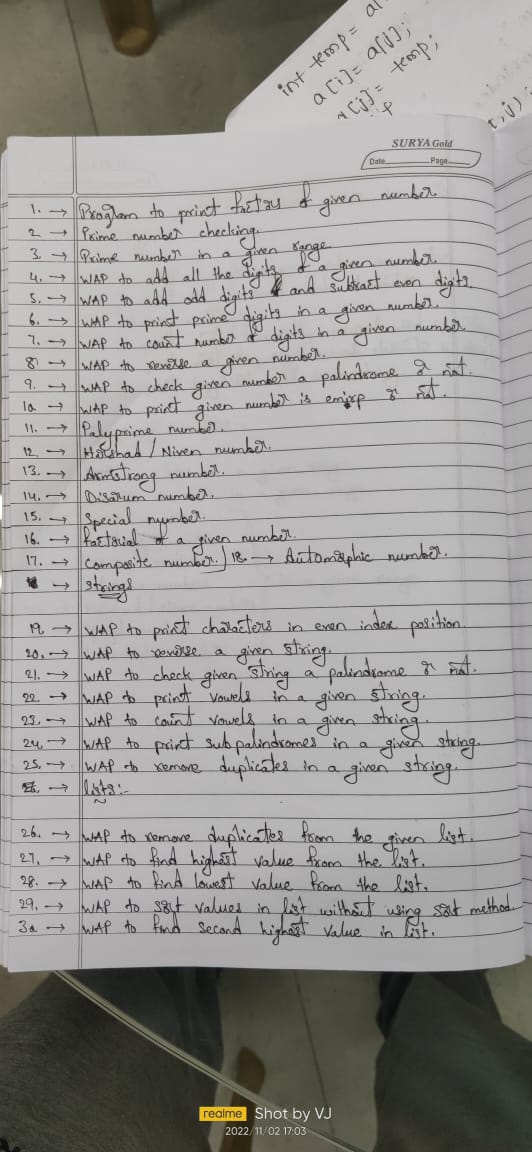 int temp = a[
a[i] = a[j];
a[j] = temp;
SURYA Gold
Date Page
1. → Program to print factors of given number
2 → Prime number checking.
3. → Prime number in a given range
4. → WAP to add all the digits of a given number.
5. → WAP to add odd digits and subtract even digits
6. → WAP to print prime digits in a given number.
7. → WAP to count number of digits in a given number
8) → WAP to reverse a given number.
9. → WAP to check given number a palindrome or not.
10 → WAP to print given number is emirp or not.
11. → Palyprime number.
12 → Harshad / Niven number.
13. → Armstrong number.
14. → Disarum number.
15. → Special number.
16. → factorial of a given number.
17. → Composite number. 18. → Automorphic number.
→ Strings
19. → WAP to print characters in even index position.
20. → WAP to reverse a given string.
21. → WAP to check given string a palindrome or not.
22. → WAP to print vowels in a given string.
23. → WAP to count vowels in a given string.
24. → WAP to print sub palindromes in a given string.
25. → WAP to remove duplicates in a given string.
→ lists:-
26. → WAP to remove duplicates from the given list.
27. → WAP to find highest value from the list.
28. → WAP to find lowest value from the list.
29. → WAP to sort values in list without using sort method.
30 → WAP to find second highest value in list.
realme Shot by VJ
2022/11/02 17:03